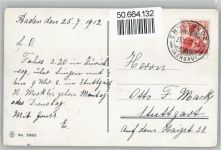 Baden den 25.7.1912
50.664.132
L. O.
Fahre 3.20 in Zürich
weg, über Singen und
bin 9 Uhr 8. in Stuttgart
Montag
oder Dienstag
Mit Gruß
E.
Herrn
Otto F. Mack
Stuttgart
Auf dem Haigst 38.
No. 2892